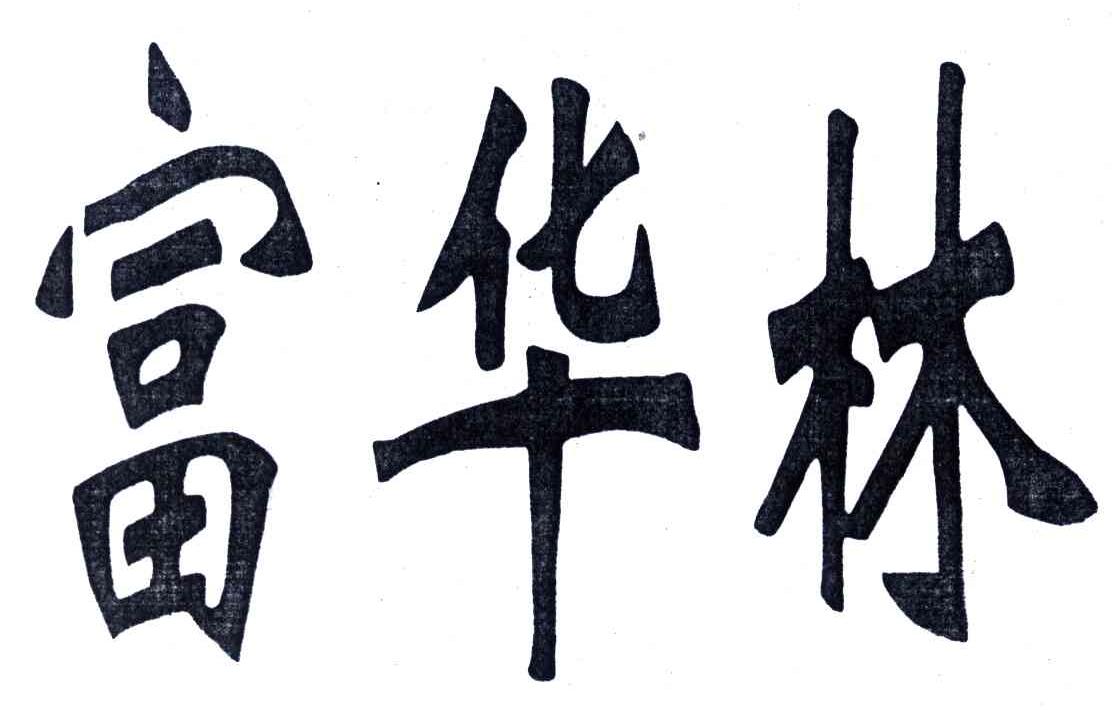 富华林